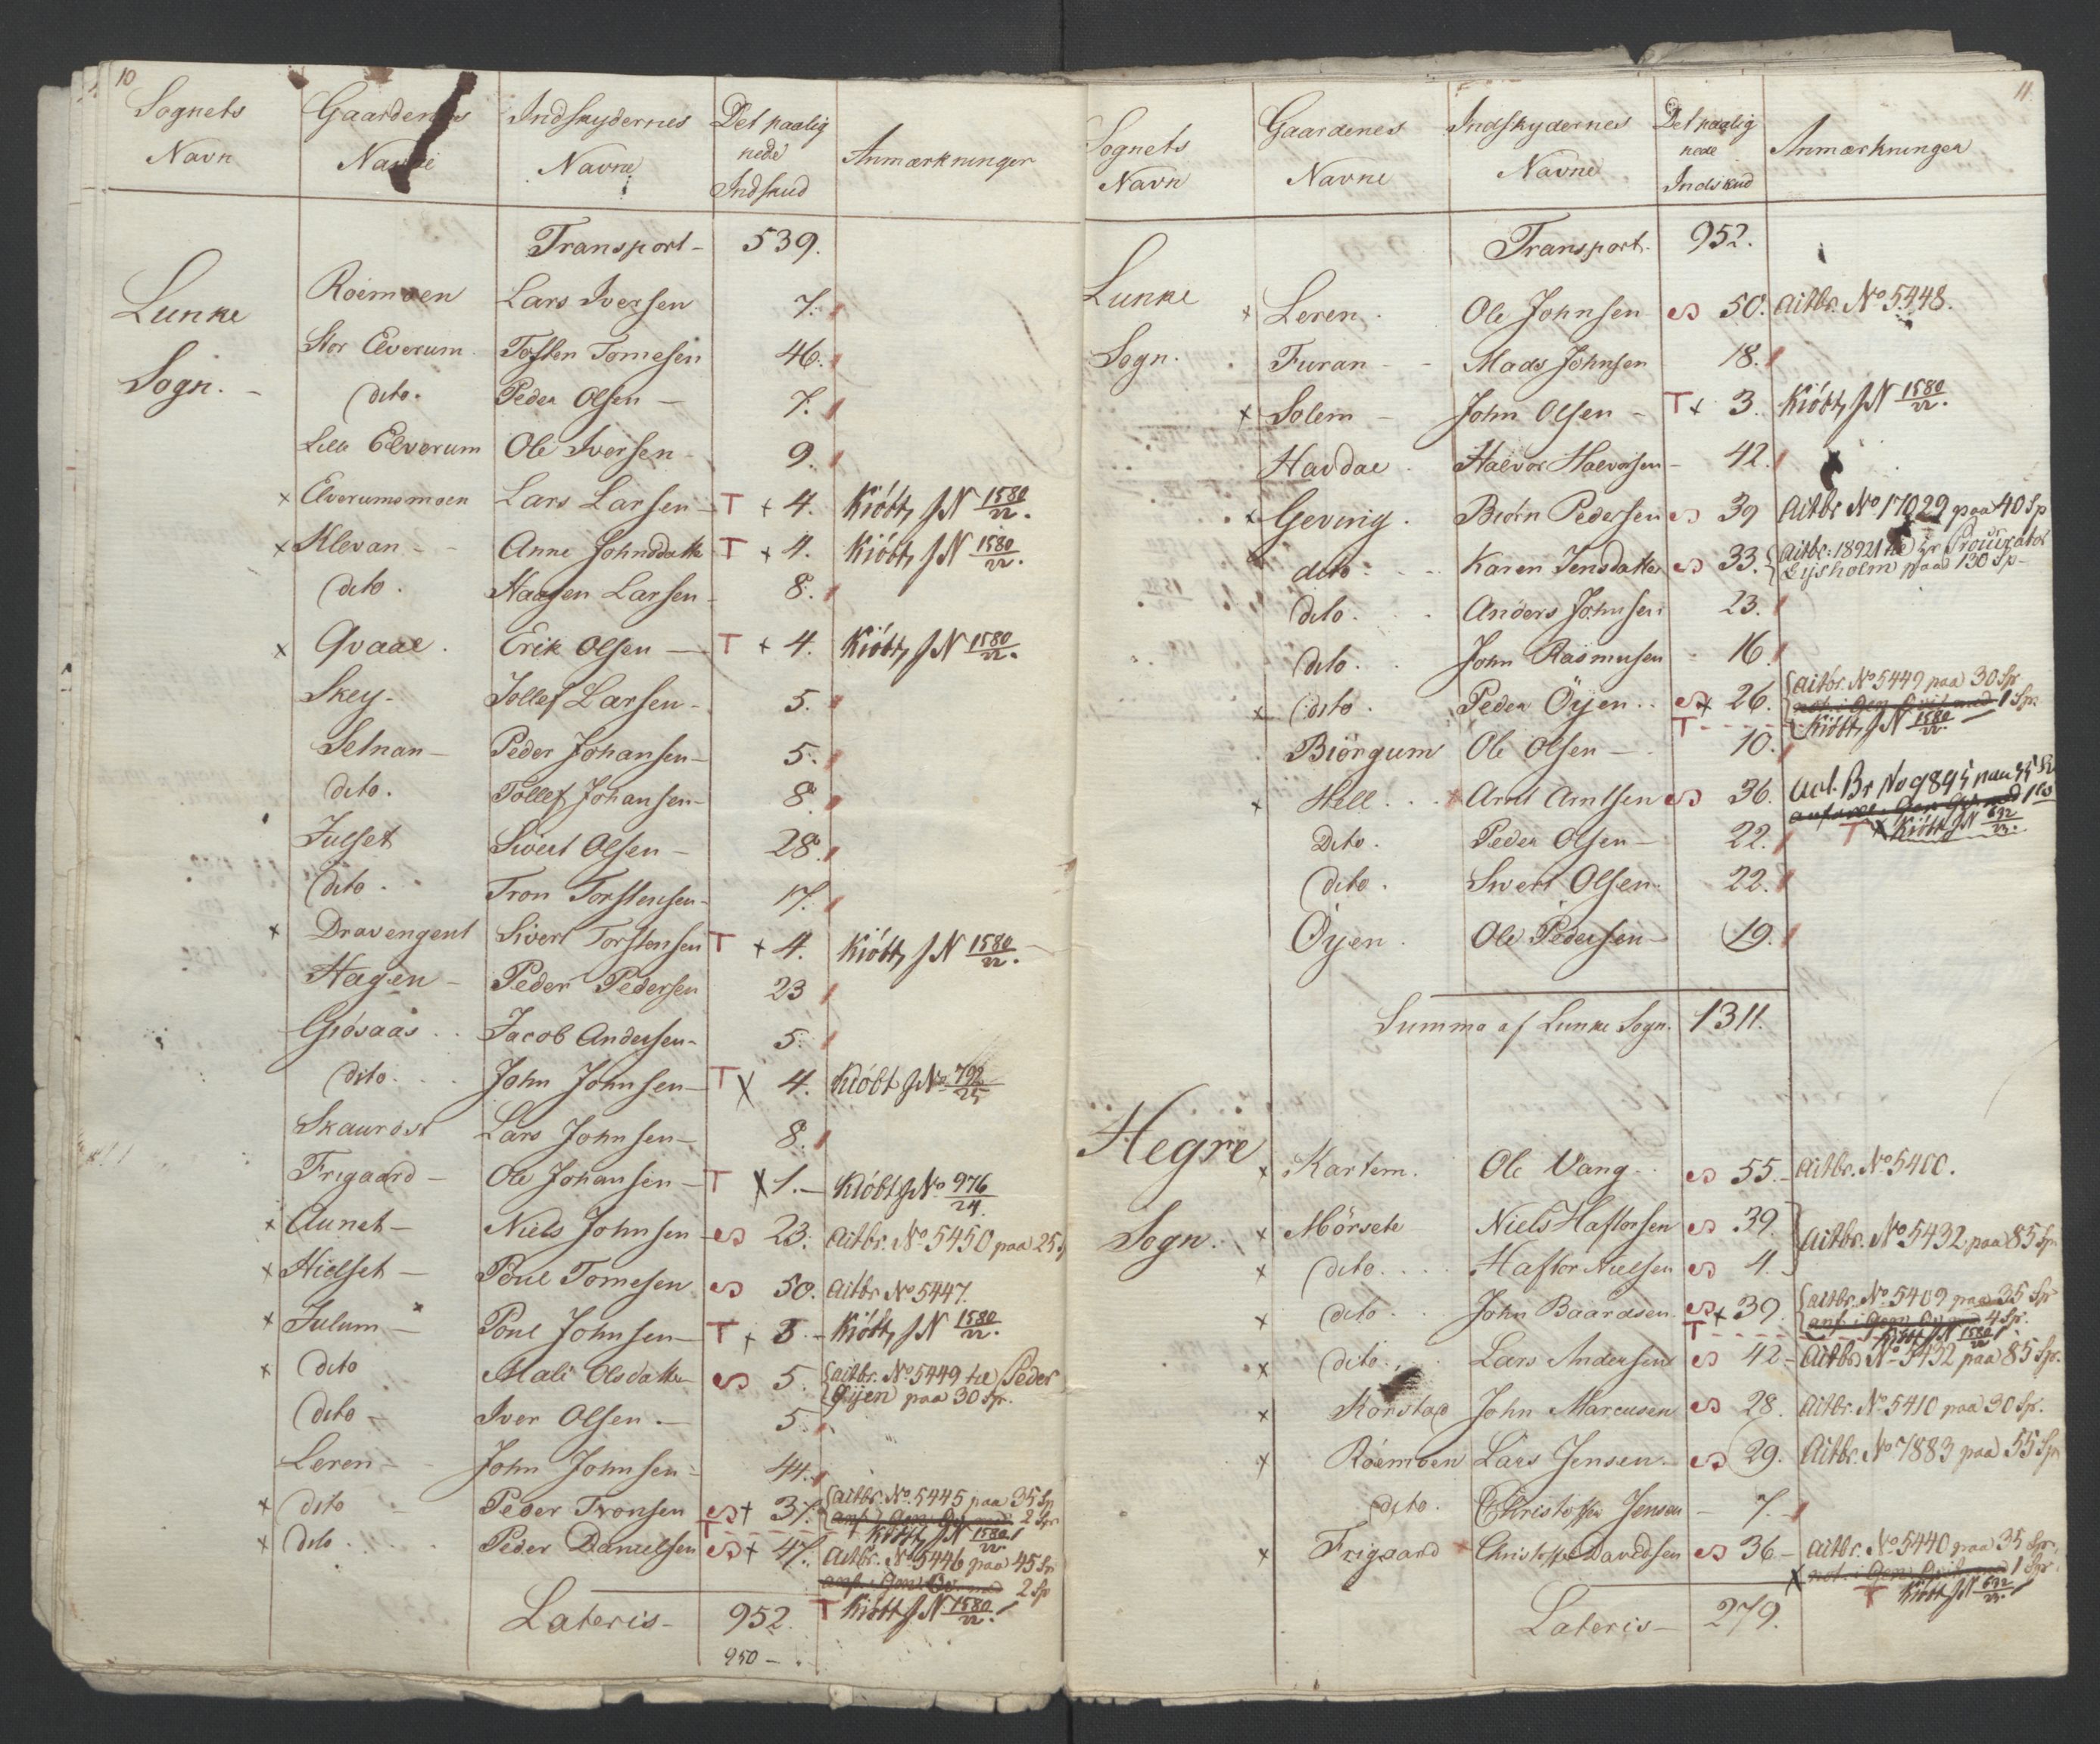 10
Sognets Navn Gaardenes Navne Indskydernes Navne Det paalignede Indskud Anmærkninger
Transport - 539.
Lunke Sogn. -
Roemoen Lars Iversen 7.
Stor Elverum Tosten Tomesen 46.
dito. Peder Olsen - 7.
Lille Elverum Ole Iversen 9.
x Elverumsmoen Lars Larsen - T + 4. Kiöbt, JN 1580/22.
x Klevan - - Anne Johnsdatter T + 4. Kiöbt, JN 1580/22.
dito. Haagen Larsen - 8.
x Qvaal. Erik Olsen - T + 4. Kiöbt, JN 1580/22.
Skey - Tollef Larsen - 5.
Selnan - Peder Johansen - 5.
dito. Tollef Johansen - 8.
Julset Sivert Olsen - 28.
dito. Tron Torstensen - 17.
x Dravengent Sivert Torstensen T + 4. Kiöbt, JN 1580/22.
Hagen - Peder Pedersen 23
Giösaas . . Jacob Andersen - 5.
dito. . . John Johnsen - T X 4. Kiöbt JNo 792/25
Skauröst Lars Johnsen - 8.
Frigaard - Ole Johansen - T X 1. - Kiöbt JNo 976/24.
x Aunet - Niels Johnsen - 23. Actbr. No 5450 paa 25
x Hielset - Poul Tomesen 50. Actbr No 5447.
x Julum - Poul Johnsen - T + 3. - Kiöbt, JN 1580/22.
x dito Mali Olsdatter 5. Actbr. No 5449 til Peder
Öijen paa 30 Sp.
dito - Iver Olsen - 5.
Leren - John Johnsen - 44.
x dito - Peder Tronsen + 37. Actbr. No. 5445 paa 35 Sp
2 Sp
T Kiöbt, JN 1580/22
x dito . . . Peder Danielsen + 47. Actbr. No 5446 paa 45 Sp
2 Sp
Lateris - 952. T Kiöbt JN 1580/22.
950 -
11.
Sognets Navn Gaardenes Navne Indskydernes Navne Det paalignede Indskud Anmærkninger
Transport. 952.
Lunke Sogn.
x Leren. Ole Johnsen 50. Actbr. No 5448.
Furan - - Mads Johnsen 18.
x Solem - John Olsen - T + 3. Kiöbt, JN 1580/22.
Havdal. Halvor Halvorsen - 42.
x Geving. Biörn Pedersen 39 Actbr No 17029 paa 40 Sp
dito. - - Karen Jensdatter 33. Actbr. 18921 til Hr Procurator
Lysholm paa 130 Sp -
dito. Anders Johnsen 23.
dito. . John Rasmusen - 16.
x dito. Peder Öyen. . + 26. Actbr. No 5449 paa 30 Sp
1 Sp.
T Kiöbt, JN 1580/22
Biörgum Ole Olsen - 10.
x Hell. . . Arnt Arntsen 36. Act. Br No 9845 paa 35 Sp
T x Kiöbt JN 632/23.
Dito. Peder Olsen - 22.
dito. Sivert Olsen. 22.
Öyen. Ole Pedersen - 19.
Summa af Lunke Sogn. 1311.
Hegre Sogn.
x Kartem. Ole Vang. . 55. - Actbr. No 5400.
x Mörsete Niels Haftorsen 39. Actbr. No 5432 paa 85 Sp.
x dito. . . . Haftor Nielsen 4.
x dito. . John Baardsen + 39. Actbr. No. 5409 paa 35 Sp
4 Sp.
T Kiöbt JN 1580/22
x dito. . . Lars Andersen 42 - Actbr No 5432 paa 85 Sp.
x Korstad John Marcusen 28. Actbr. No 5410 paa 30 Sp.
x Röemoen Lars Jensen - 29. Actbr. No 7883 paa 55 Sp
dito. Christoffer Jensen - 7. -
x Frigaard Christoffer Davidsen 36 - Actbr. No 5440 paa 35 Sp.
x 1 Sp.
T Kiöbt JN 632/23.
Lateris - 279.